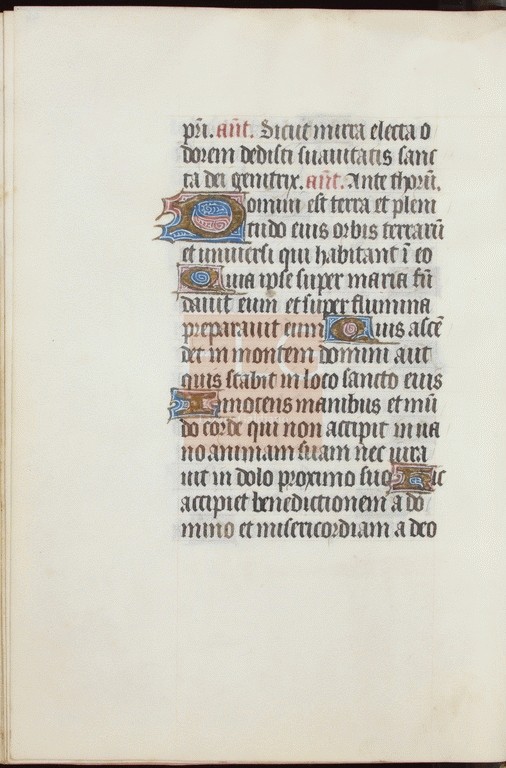 pr̄i. an̄t. Sicut mirra electa o
dorem dedisti suavitatis sanc
ta dei genitrix. an̄t. Ante thorū.
Domini est terra et pleni
tudo eius orbis terrarū
et universi qui habitant ī eo
Quia ipse super maria fū
davit eum et super flumina
preparavit eum Quis ascē
det in montem domini aut
quis stabit in loco sancto eius
Innocens manibus et mū
do corde qui non accipit in va
no animam suam nec iura
vit in dolo proximo suo Hic
accipiet benedictionem a do
mino et misericordiam a deo